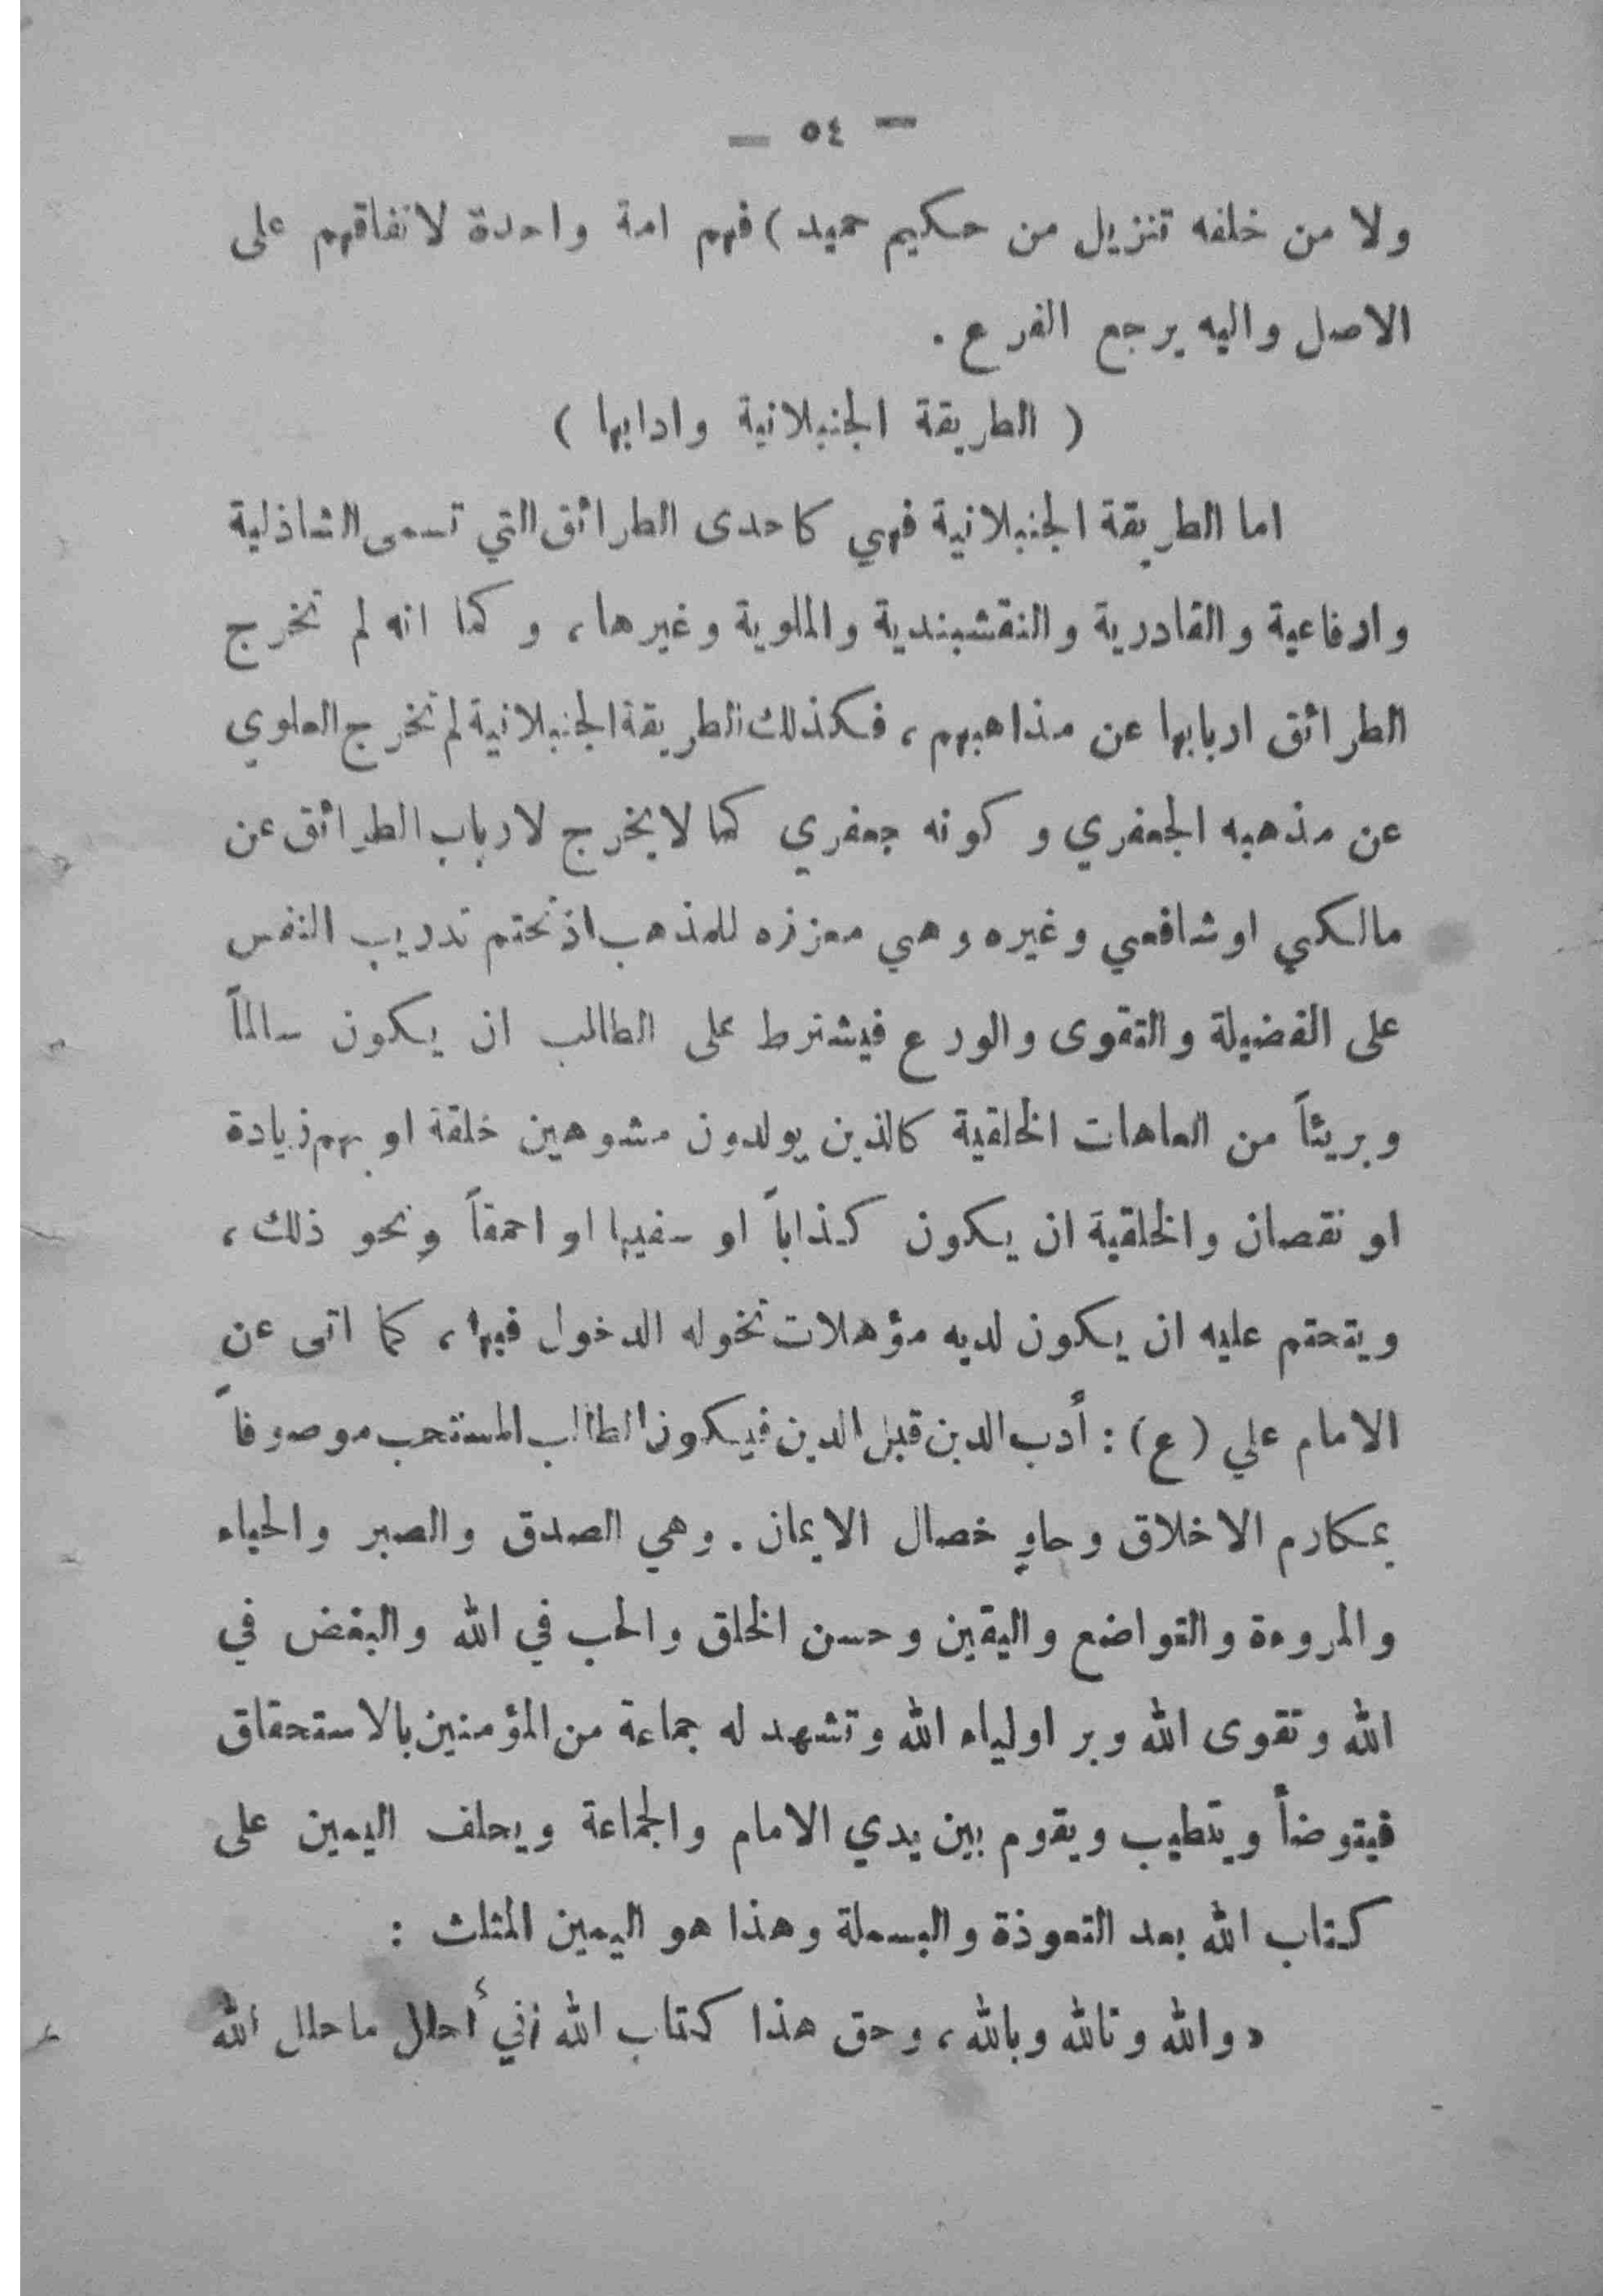 — ٥٤ —
ولا من خلفه تنزيل من حكيم حميد ) فهم امة واحدة لاتفاقهم على
الاصل واليه يرجع الفرع .
( الطريقة الجنبلانية وادابها )
اما الطريقة الجنبلانية فهي كاحدى الطرائق التي تسمى الشاذلية
وارفاعية والقادرية والنقشبندية والملوية وغيرها ، وكما انه لم تخرج
الطرائق اربابها عن مذاهبهم ، فكذلك الطريقة الجنبلانية لم تخرج العلوي
عن مذهبه الجعفري وكونه جعفري كما لا يخرج لارباب الطرائق عن
مالكي او شافعي وغيره وهي معززه للمذهب اذ تحتم تدريب النفس
على الفضيلة والتقوى والورع فيشترط على الطالب ان يكون سالماً
وبريئاً من العاهات الخلقية كالذين يولدون مشوهين خلقة او بهم زيادة
او نقصان والخلقية ان يكون كذاباً او سفيها او احمقاً ونحو ذلك ،
ويتحتم عليه ان يكون لديه مؤهلات تخوله الدخول فيها ، كما اتى عن
الامام علي ( ع ) : أدب الدين قبل الدين فيكون الطالب المستحب موصوفاً
بمكارم الاخلاق وحاوٍ خصال الايمان . وهي الصدق والصبر والحياء
والمروءة والتواضع واليقين وحسن الخلق والحب في الله والبغض في
الله وتقوى الله وبر اولياء الله وتشهد له جماعة من المؤمنين بالاستحقاق
فيتوضأ ويتطيب ويقوم بين يدي الامام والجماعة ويحلف اليمين على
كتاب الله بعد التعوذة والبسملة وهذا هو اليمين المثلث :
« والله وتالله وبالله ، وحق هذا كتاب الله إني أحلل ما حلل الله